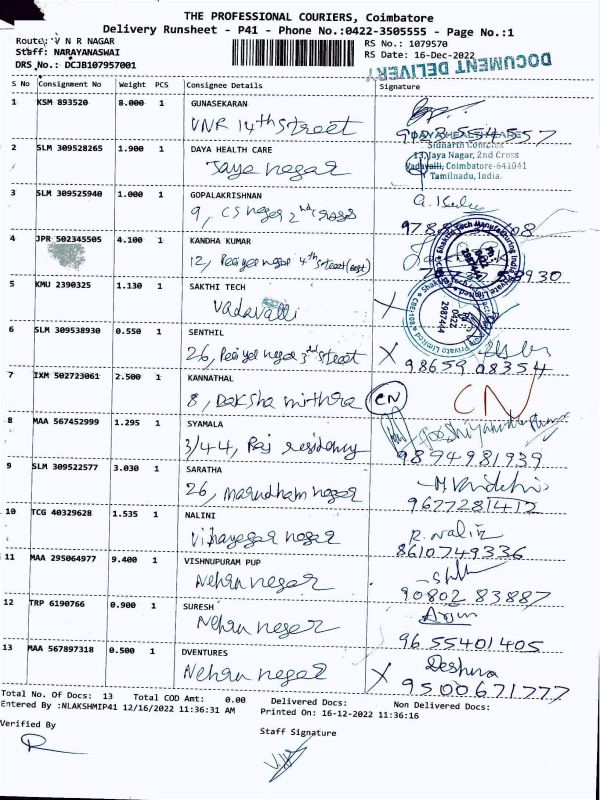 THE PROFESSIONAL COURIERS, Coimbatore
Delivery Runsheet - P41 - Phone No.:0422-3505555 - Page No.:1
Route: V N R NAGAR
RS No.: 1079570
Staff: NARAYANASWAI
RS Date: 16-Dec-2022
DRS No.: DCJB107957001
DOCUMENT DELIVERY
S No Consignment No Weight PCS Consignee Details Signature
1 KSM 893520 8.000 1 GUNASEKARAN
VNR 14th street
2 SLM 309528265 1.900 1 DAYA HEALTH CARE
Jaya nagar
DAYA HEALTH CARE
Sidharth Complex
13, Jaya Nagar, 2nd Cross
Vadavalli, Coimbatore-641041
Tamilnadu, India.
3 SLM 309525940 1.000 1 GOPALAKRISHNAN
9, CS nagar 2nd
4 JPR 502345505 4.100 1 KANDHA KUMAR
12, Periyar nagar 4th street (East)
5 KMU 2390325 1.130 1 SAKTHI TECH
Vadavalli
6 SLM 309538930 0.550 1 SENTHIL
26, Periyar nagar 3rd street
98659 08354
7 IXM 502723061 2.500 1 KANNATHAL
8, Daksha mithra CN CN
8 MAA 567452999 1.295 1 SYAMALA
3/44, Raj residency
9894981939
9 SLM 309522577 3.030 1 SARATHA
26, marudham nagar
9627281412
10 TCG 40329628 1.535 1 NALINI
Vijayagar nagar
R. Nalini
8610749336
11 MAA 295064977 9.400 1 VISHNUPURAM PUP
Nehru nagar
90802 83887
12 TRP 6190766 0.900 1 SURESH
Nehru nagar
Arjun
9655401405
13 MAA 567897318 0.500 1 DVENTURES
Nehru nagar
X
9500671777
Total No. Of Docs: 13 Total COD Amt: 0.00 Delivered Docs: Non Delivered Docs:
Entered By :NLAKSHMIP41 12/16/2022 11:36:31 AM Printed On: 16-12-2022 11:36:16
Verified By
Staff Signature